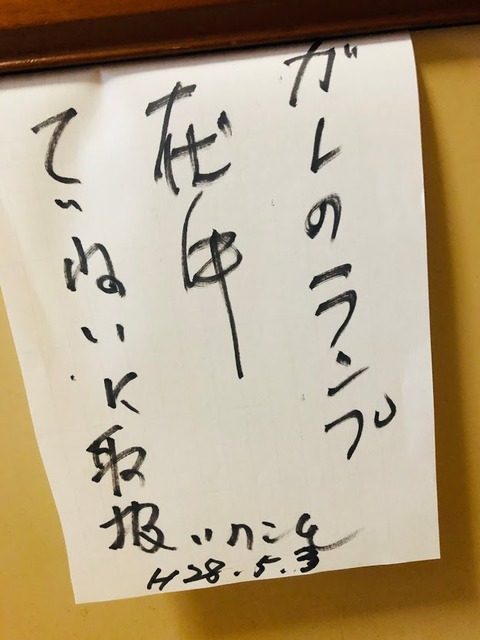 ガレのランプ
在中
ていねいに取扱いのこと
H28.5.3